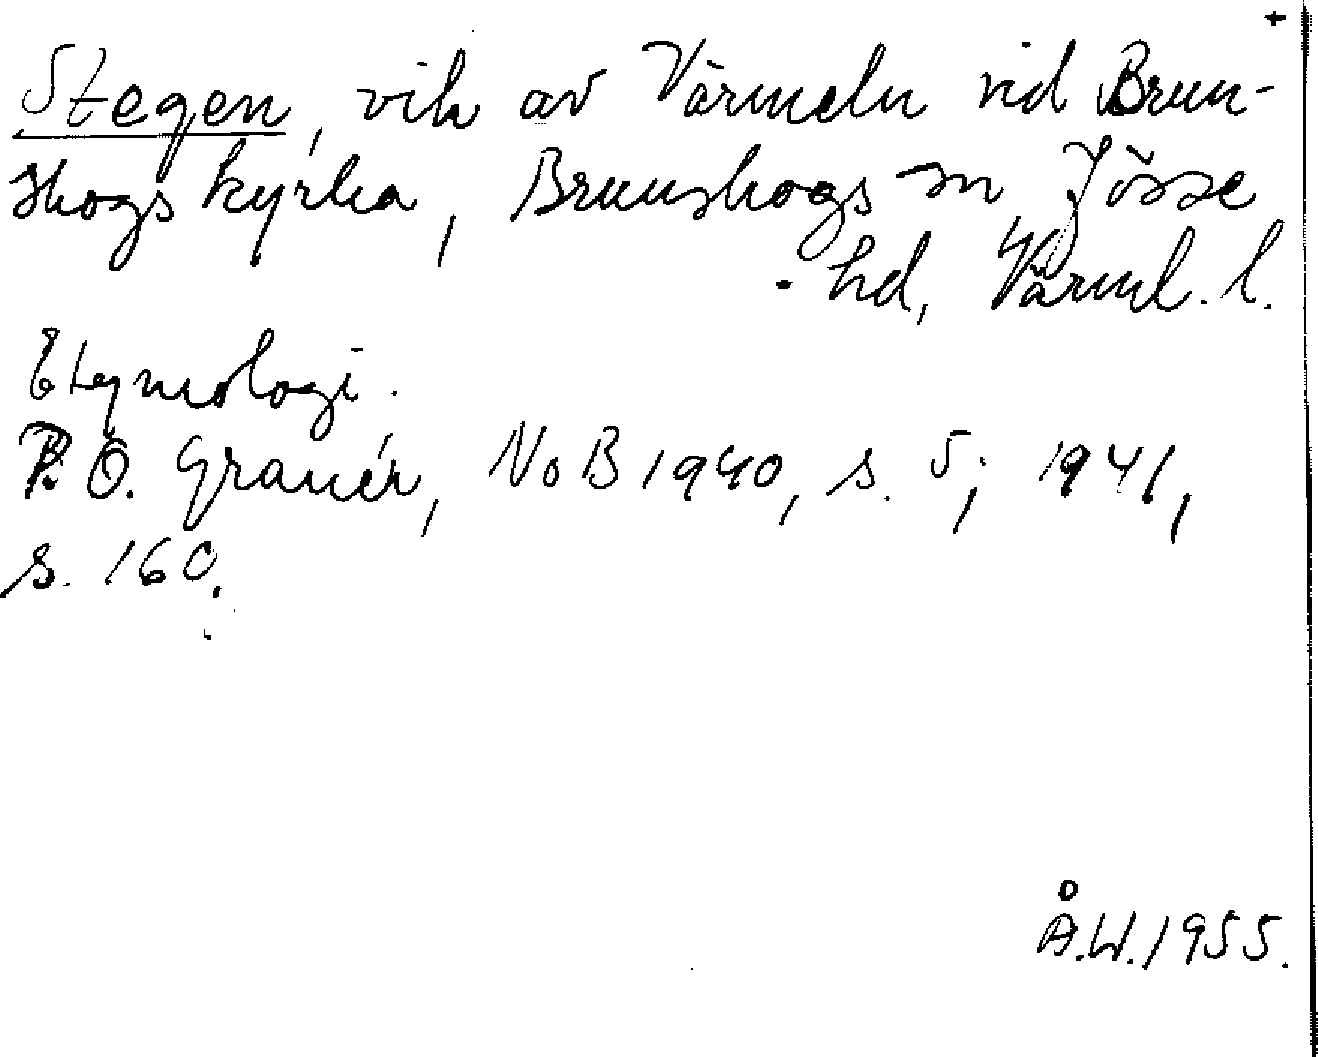 +
Stegen, vik av Värmeln vid Brun-
skogs kyrka, Brunskogs sn Jösse
hd, Värml. l.
Etymologi.
P. Ö. Granér, NoB 1940, s. 5; 1941,
s. 160.
Å.W. 1955.